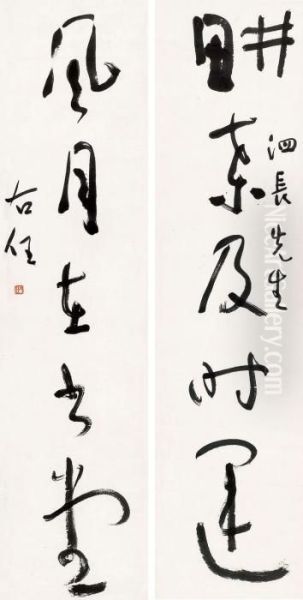 畊桒及時運
泗長先生
風月在書堂
右任